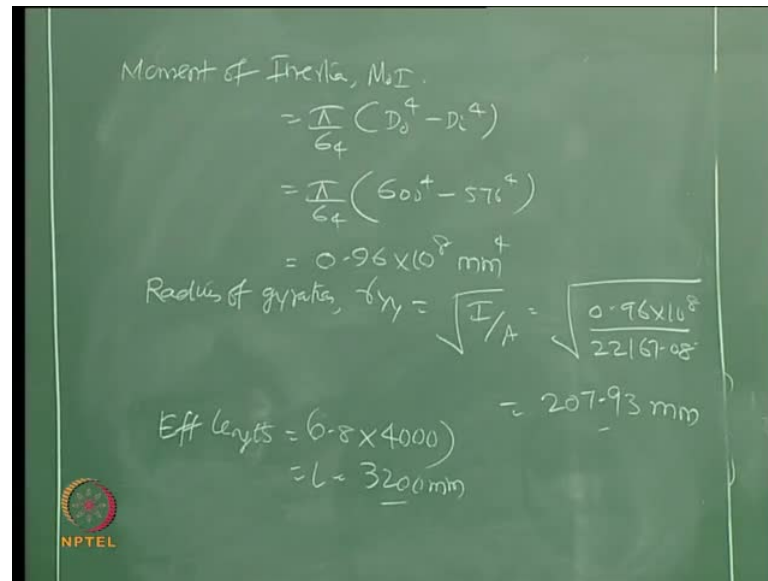 Moment of Inertia, M.I.
= π/64 (D₀⁴ - Di⁴)
= π/64 (600⁴ - 576⁴)
= 0.96 x 10⁸ mm⁴
Radius of gyration, ryy = √(I/A) = √(0.96x10⁸ / 22167.08)
= 207.93 mm
Eff length = 0.8 x 4000)
= L = 3200 mm
NPTEL